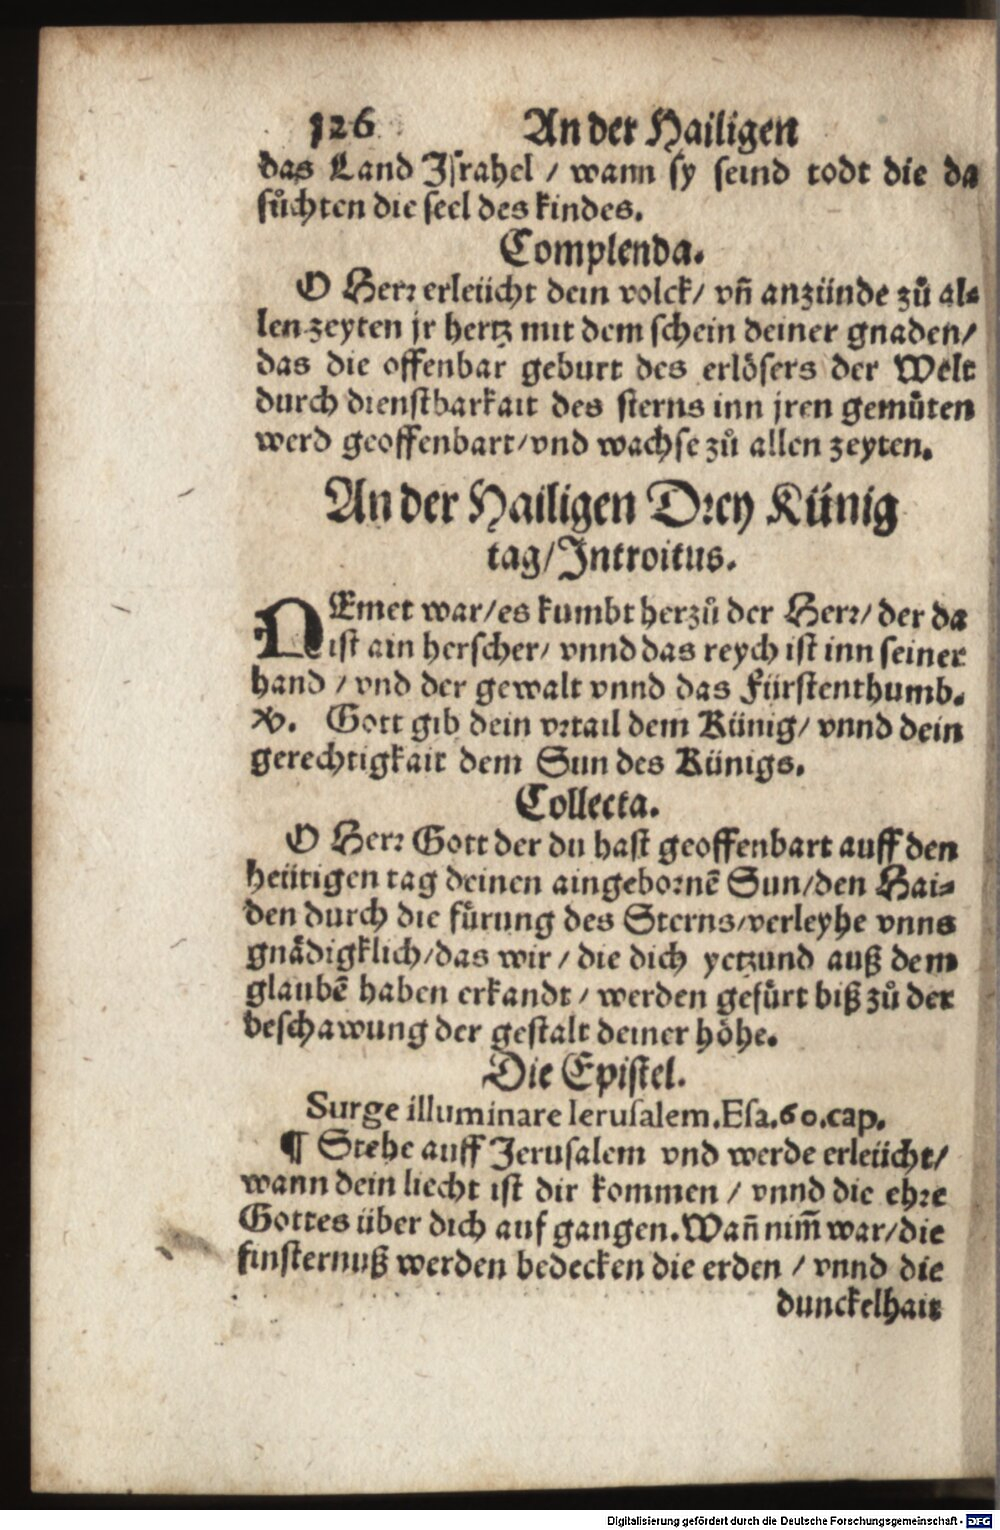 126 An der Hailigen
das Land Israhel / wann sy seind todt die da
sůchten die seel des kindes.
Complenda.
O Herr erleücht dein volck / vñ anzünde zů al⸗
len zeyten jr hertz mit dem schein deiner gnaden /
das die offenbar geburt des erlösers der Welt
durch dienstbarkait des sterns inn jren gemůten
werd geoffenbart / vnd wachse zů allen zeyten.
An der Hailigen Drey Künig
tag / Introitus.
NEmet war / es kumbt herzů der Herr / der da
ist ain herscher / vnnd das reych ist inn seiner
hand / vnd der gewalt vnnd das Fürstenthumb.
℣. Gott gib dein vrtail dem Künig / vnnd dein
gerechtigkait dem Sun des Künigs.
Collecta.
O Herr Gott der du hast geoffenbart auff den
heütigen tag deinen aingebornē Sun / den Hai⸗
den durch die fůrung des Sterns / verleyhe vnns
gnådigklich / das wir / die dich yetzund auß dem
glaubē haben erkandt / werden gefůrt biß zů der
beschawung der gestalt deiner höhe.
Die Epistel.
Surge illuminare Ierusalem. Esa. 60. cap.
¶ Stehe auff Jerusalem vnd werde erleücht /
wann dein liecht ist dir kommen / vnnd die ehre
Gottes über dich auf gangen. Wañ nim̃ war / die
finsternuß werden bedecken die erden / vnnd die
dunckelhait
Digitalisierung gefördert durch die Deutsche Forschungsgemeinschaft - DFG